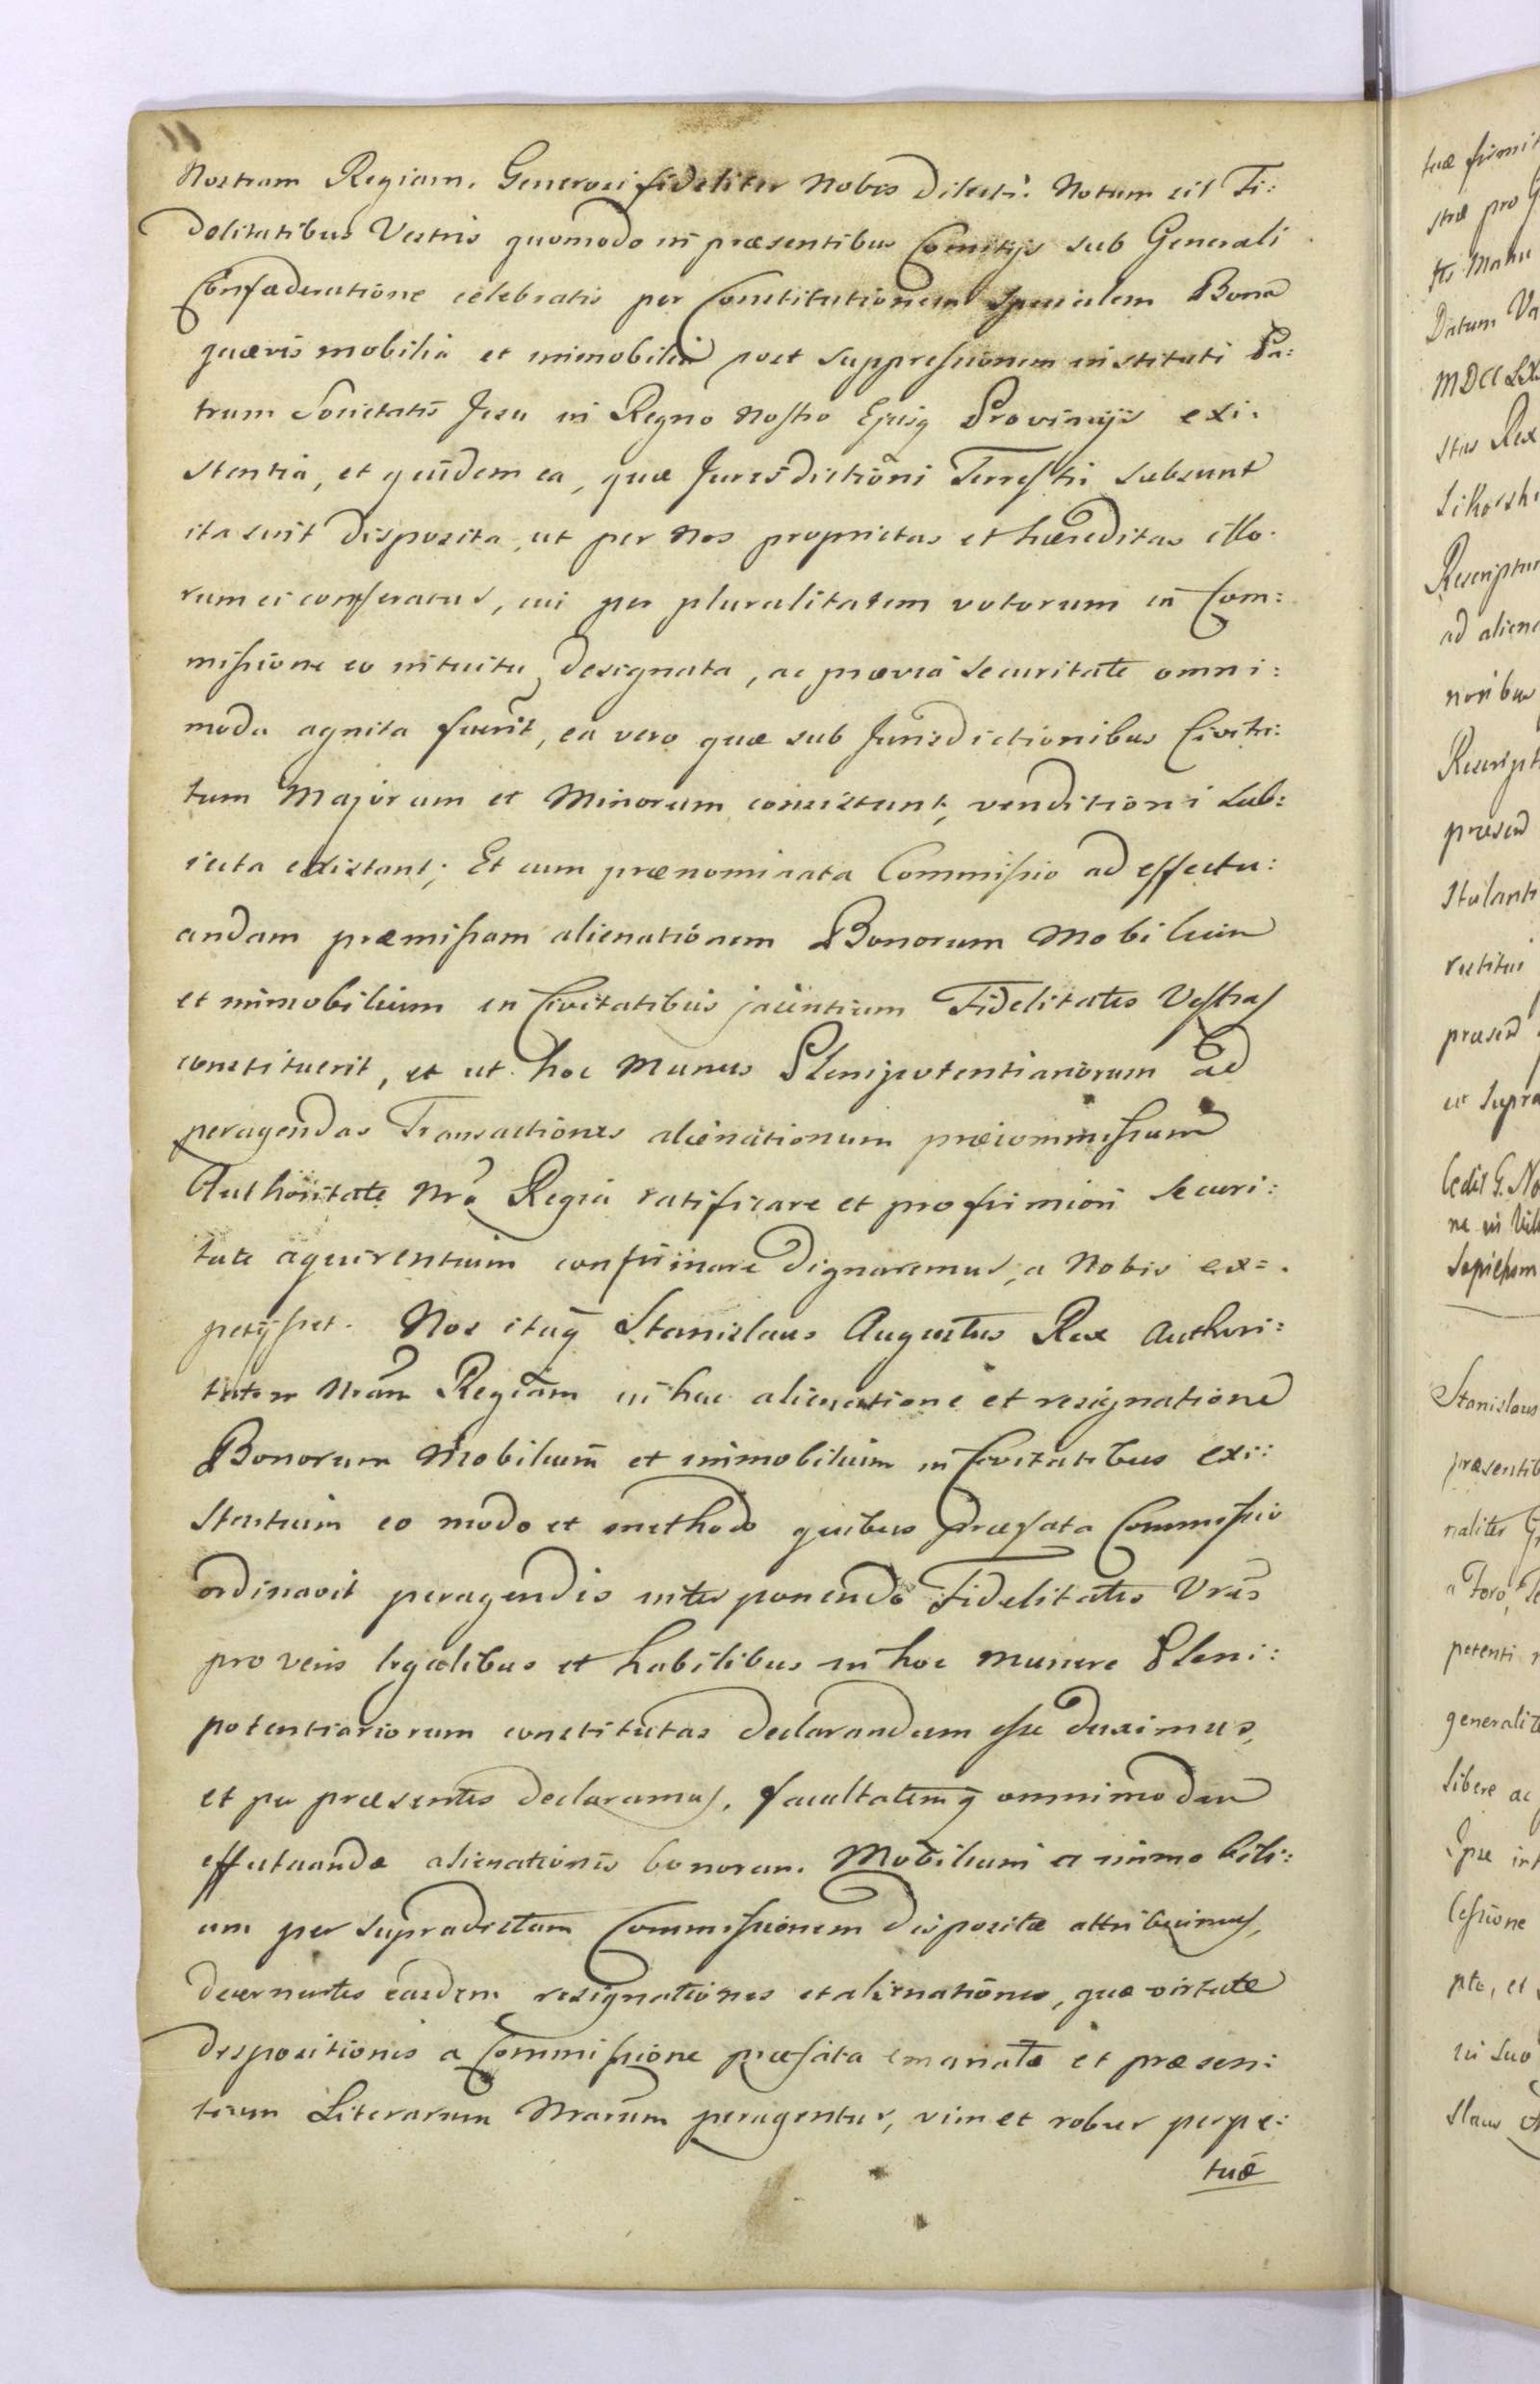 11
Nostram Regiam. Generosi fideliter Nobis Dilecti. Notum sit Fi:
delitatibus Vestris quomodo in præsentibus Comitijs sub Generali
Confæderatione celebratis per Constitutionem specialem Bona
quævis mobilia et immobilia post suppressionem instituti Pa:
trum Societatis Jesu in Regno Nostro Ejusq Provincijs exi:
stentia, et quidem ea, quæ Jurisdictioni Terrestri subsunt
ita sint disposita, ut per Nos proprietas et hæreditas illo:
rum ei conferatur, cui per pluralitatem votorum in Com:
missione eo intuitu designata, ac prævia securitate omni:
moda agnita fuerit, ea vero quæ sub Jurisdictionibus Civita:
tum Majorum et Minorum consistunt, venditioni sub:
jecta existant; Et cum prænominata Commissio ad effectu:
andam præmissam alienationem Bonorum Mobilium
et immobilium in Civitatibus jacentium Fidelitates Vestras
constituerit, et ut hoc Munus Plenipotentiariorum ad
peragendas Transactiones alienationum præcommissum
Authoritate Nra Regia ratificare et pro firmiori securi:
tate aquirentium confirmare dignaremur, a Nobis ex=
petijsset. Nos itaq Stanislaus Augustus Rex Authori:
tatem Nram Regiam in hac alienatione et resignatione
Bonorum Mobilium et immobilium in Civitatibus exi:
stentium eo modo et methodo quibus præfata Commissio
ordinavit peragendis interponendo Fidelitates Vras
pro veris legalibus et habilibus in hoc munere Pleni:
potentiariorum constitutas declarandum esse duximus,
et per præsentes declaramus, facultatemq omnimodam
effectuandæ alienationis bonorum Mobilium et immobili:
um per supradictam Commissionem dispositæ attribuimus,
decernentes easdem resignationes et alienationes, quæ virtute
dispositionis a Commissione præfata emanatæ et præsen:
tium Literarum Nrarum peragentur, vim et robur perpe:
tuæ
tuæ firmit
stræ pro G
tris Manu
Datum Va
MDCCLX
stus Rex
Sikorski
Rescriptum
ad aliena
noribus
Rescript
præsen
stulanti
restitui
præsen
ut supra
Cedit G. No
ne in Vil
Sapieham
Stanislaus
præsentib
naliter G
a Foro, Te
petenti
generalit
libere ac
Ipse int
Cessione
pto, et
in suo
slaus